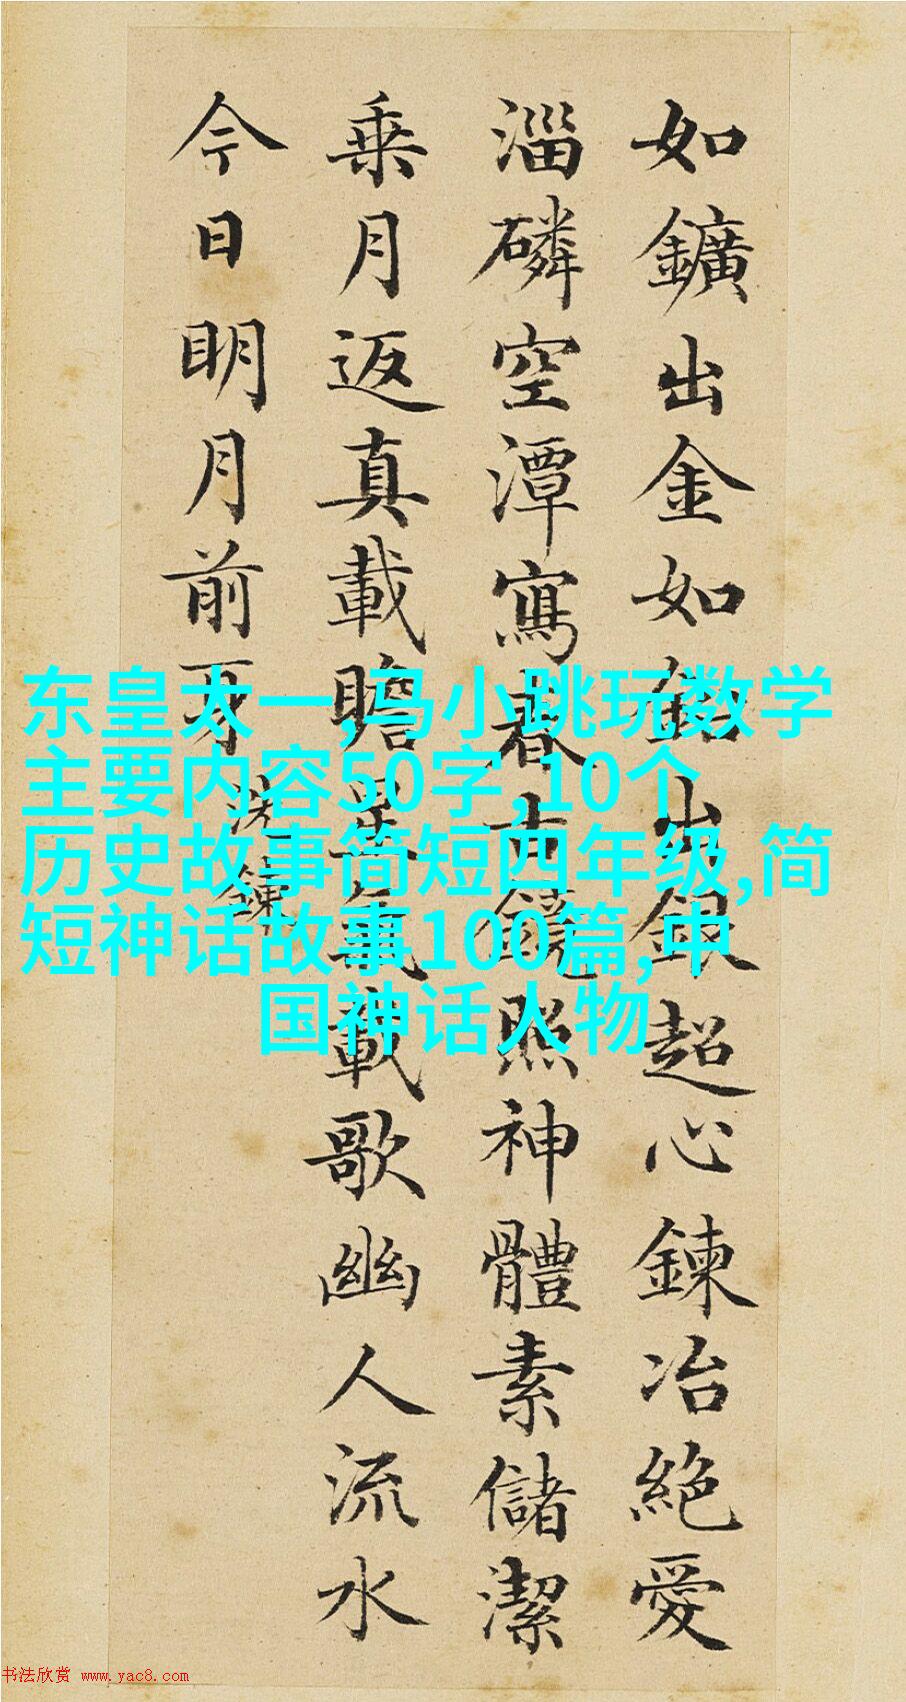 如鑛出金如鉛出銀超心鍊冶絕愛
淄磷空潭寫春古鏡照神體素儲潔
乘月返真載瞻星氣載歌幽人流水
今日明月前身
洗鍊
东皇太一,马小跳玩数学
主要内容50字,10个
历史故事简短四年级,简
短神话故事100篇,中
国神话人物
书法欣赏 www.yac8.com